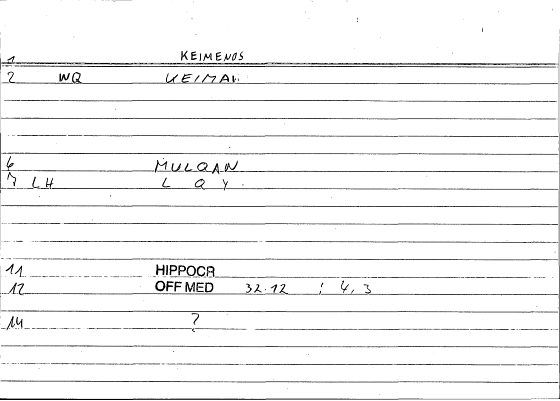 1 KEIMENOS
2 WQ KEIMAI
6 MULQAN
7 LH L Q Y
11 HIPPOCR
12 OFF MED 32.12 : 4,3
14 ?